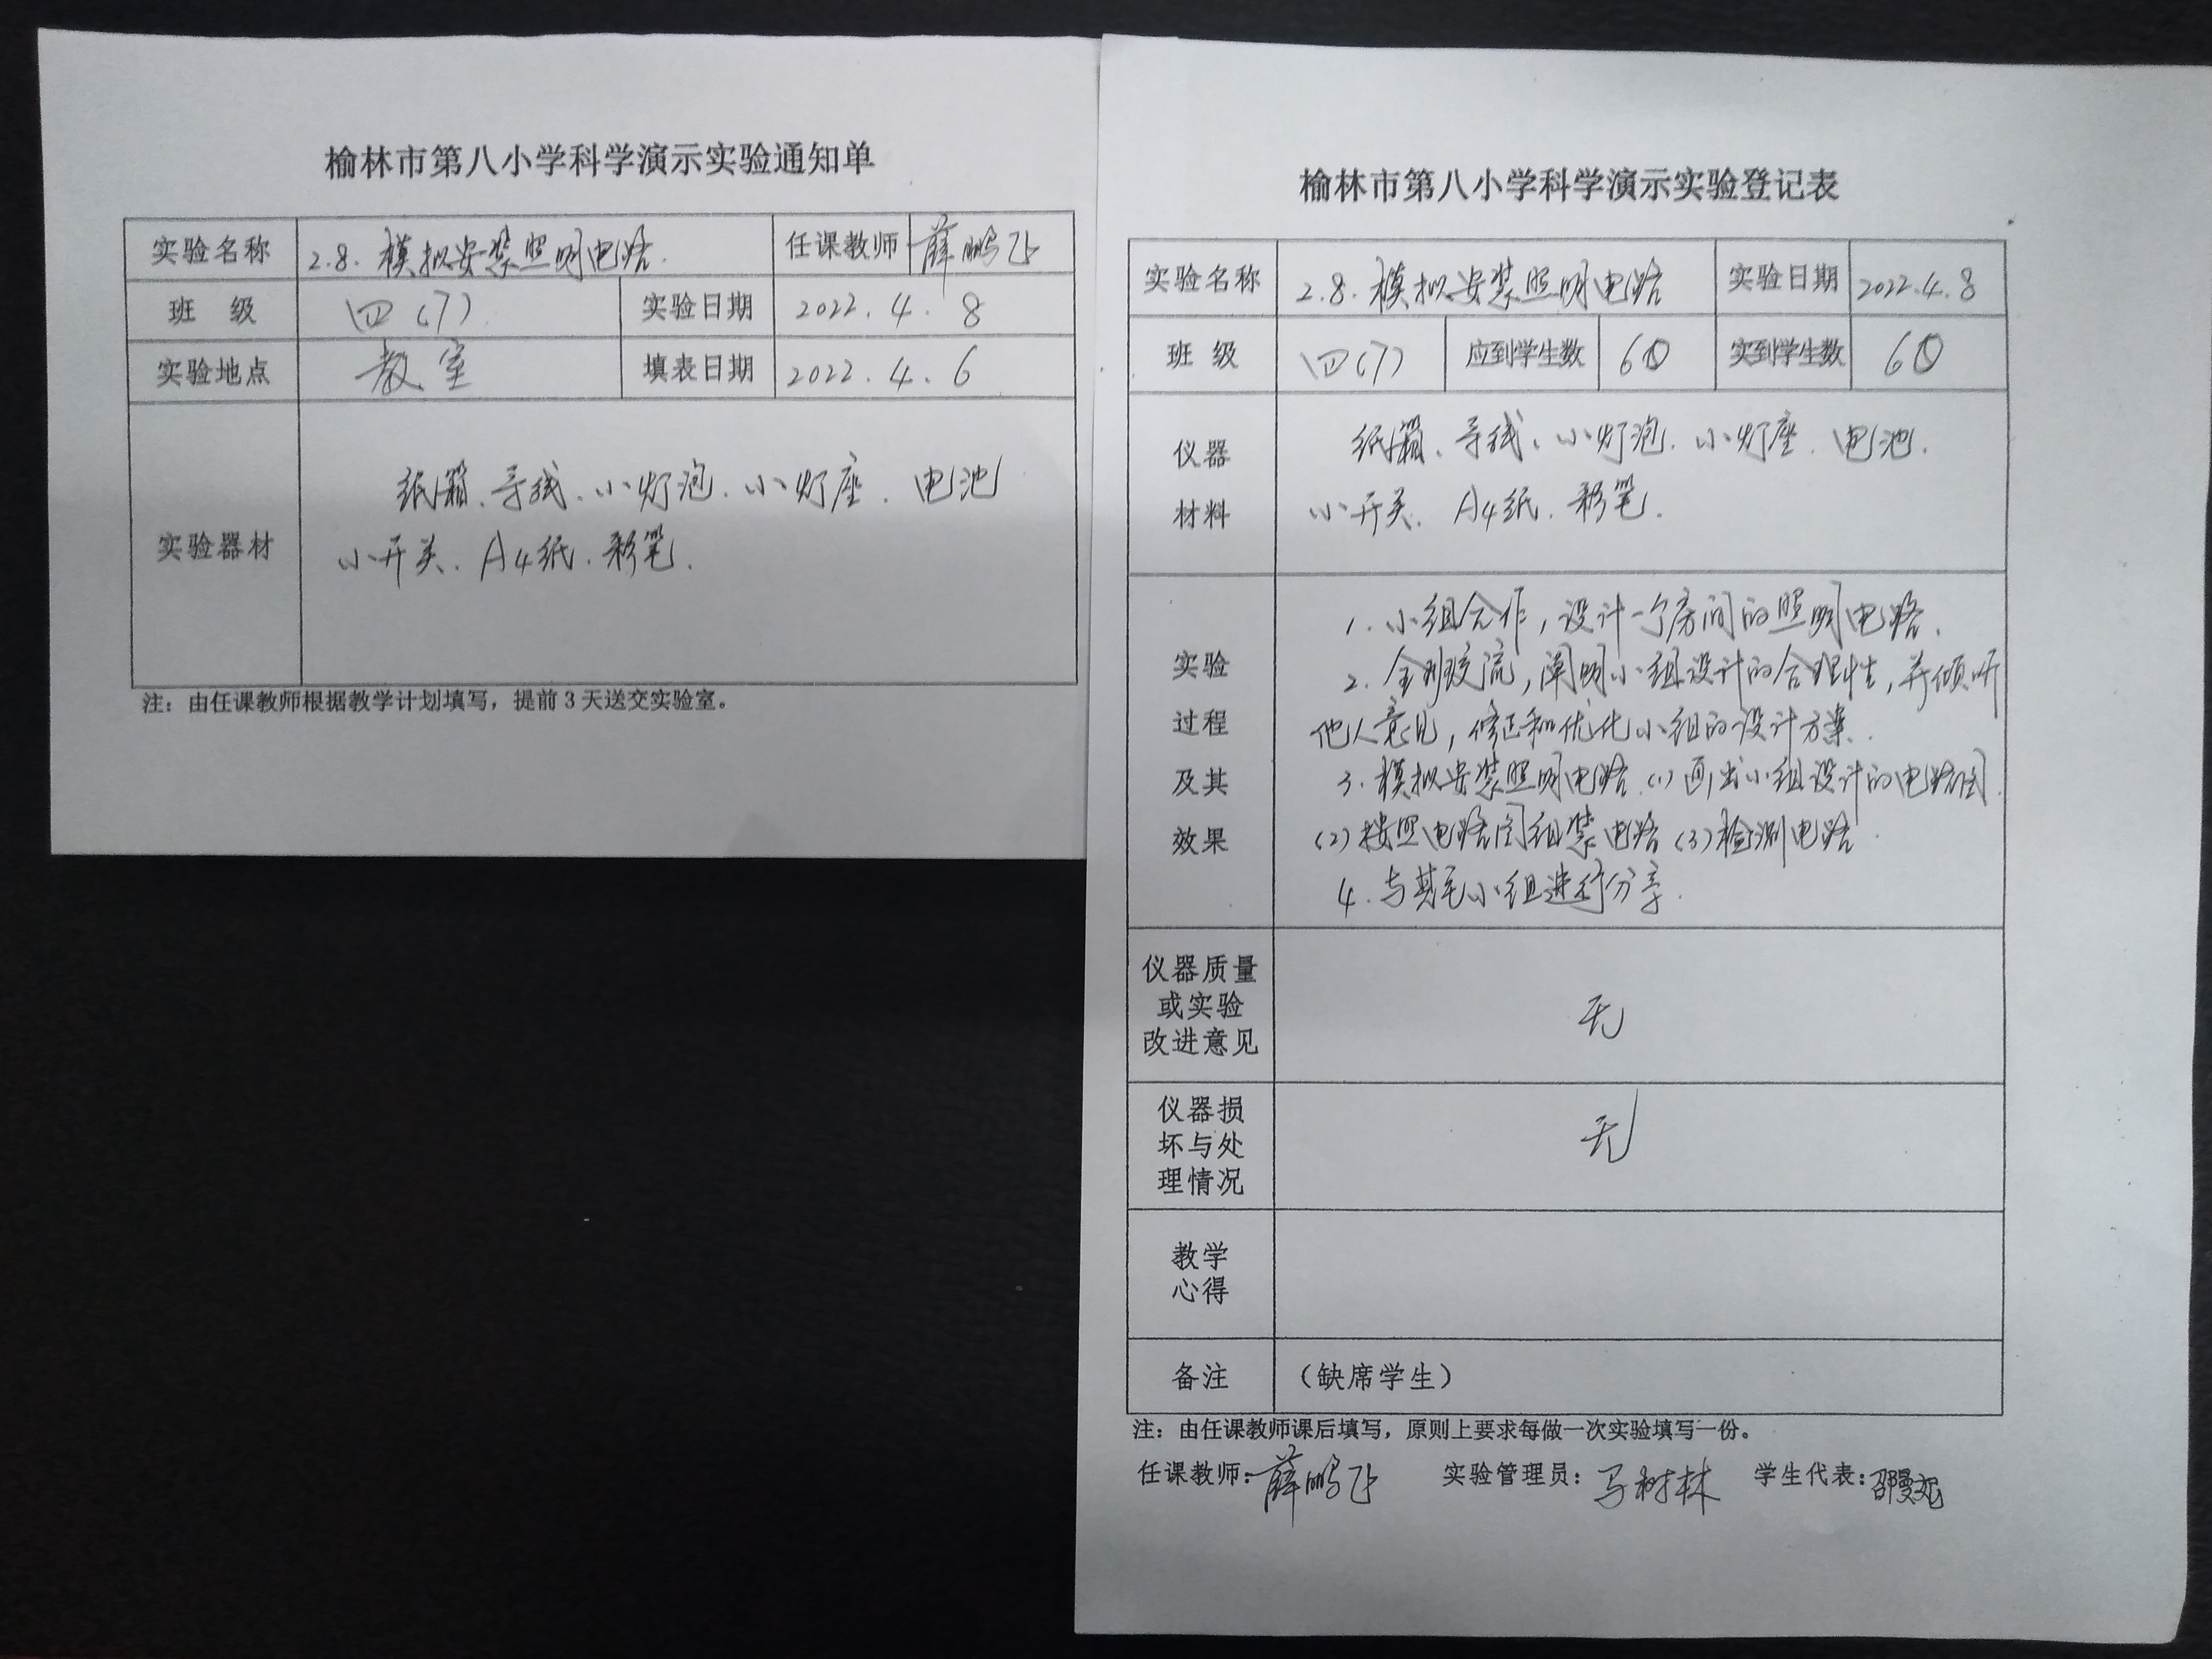 榆林市第八小学科学演示实验通知单
实验名称 2.8.模拟安装照明电路. 任课教师 薛鹏飞
班 级 四(7) 实验日期 2022.4.8
实验地点 教室 填表日期 2022.4.6
实验器材
纸箱、导线、小灯泡、小灯座、电池
小开关、A4纸、彩笔.
注：由任课教师根据教学计划填写，提前3天送交实验室。
榆林市第八小学科学演示实验登记表
实验名称 2.8.模拟安装照明电路 实验日期 2022.4.8
班 级 四(7) 应到学生数 60 实到学生数 60
仪器
材料
纸箱、导线、小灯泡、小灯座、电池.
小开关、A4纸、彩笔.
实验
过程
及其
效果
1.小组合作，设计一个房间的照明电路.
2.全班交流，阐明小组设计的合理性，并倾听
他人意见，修正和优化小组的设计方案.
3.模拟安装照明电路(1)画出小组设计的电路图.
(2)按照电路图组装电路(3)检测电路.
4.与其它小组进行分享.
仪器质量
或实验
改进意见
无
仪器损
坏与处
理情况
无
教学
心得
备注 （缺席学生）
注：由任课教师课后填写，原则上要求每做一次实验填写一份。
任课教师：薛鹏飞 实验管理员：马树林 学生代表：邵曼